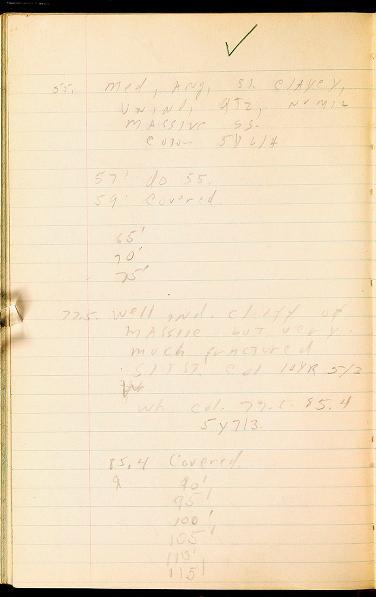 55. Med, Ang, Sl. Clayey,
Unind, QTZ, No mic
Massive SS.
Color 5Y 6/4
57' do 55.
59' Covered
65'
70'
75'
77.5. Well ind. clayey
Massive but very
much fractured
SLTST. Col 10YR 5/3
Wh col. 77.5 - 85.4
5Y7/3.
85.4 Covered.
90'
95'
100'
105'
110'
115'